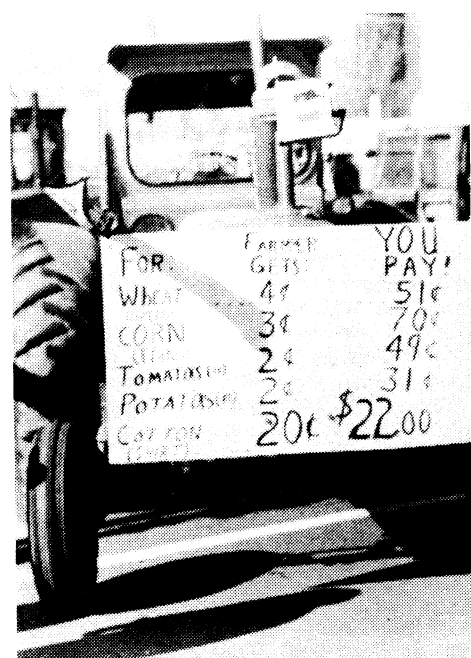 FOR: FARMER GETS: YOU PAY!
WHEAT ... 4¢ 51¢
CORN 3¢ 70¢
TOMATOS 2¢ 49¢
POTATOS 2¢ 31¢
COTTON 20¢ $22.00
(SHIRT)